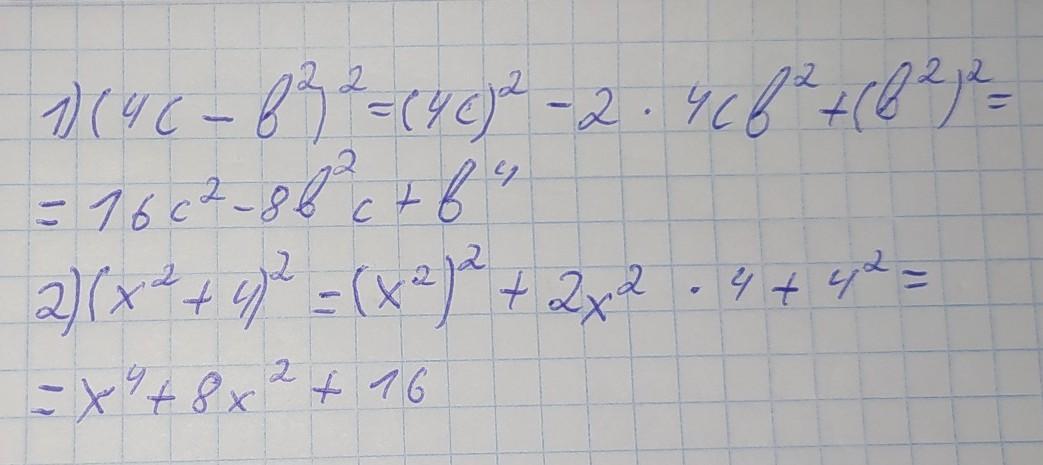 1) (4c - b²)² = (4c)² - 2 · 4cb² + (b²)² =
= 16c² - 8b²c + b⁴
2) (x² + 4)² = (x²)² + 2x² · 4 + 4² =
= x⁴ + 8x² + 16